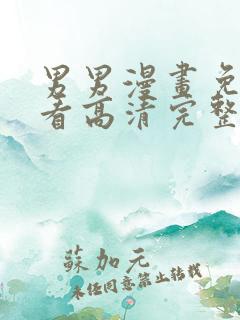 男男漫畫免
看高清完整
蘇加元
未任同意禁止轉載